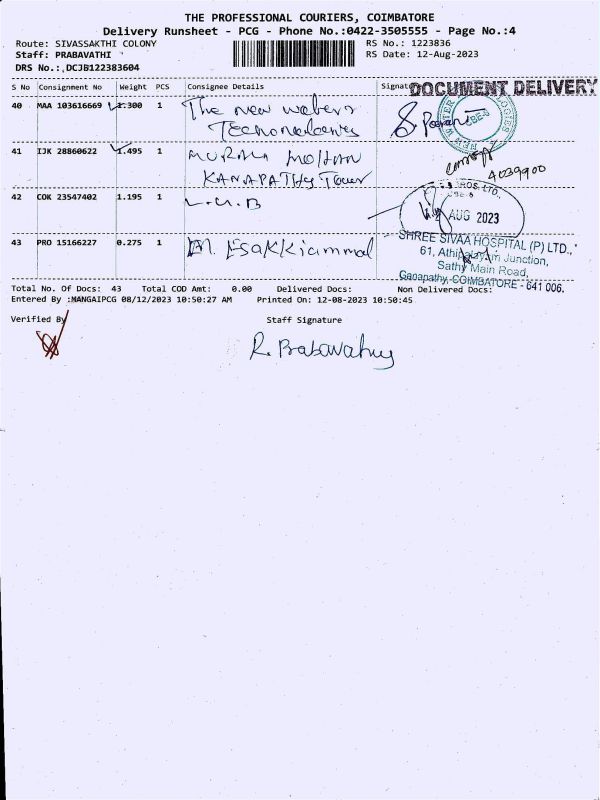 THE PROFESSIONAL COURIERS, COIMBATORE
Delivery Runsheet - PCG - Phone No.:0422-3505555 - Page No.:4
Route: SIVASSAKTHI COLONY
RS No.: 1223836
Staff: PRABAVATHI
RS Date: 12-Aug-2023
DRS No.:,DCJB122383604
S No Consignment No Weight PCS Consignee Details Signat
DOCUMENT DELIVERY
40 MAA 103616669 1.300 1 The new
41 IJK 28860622 1.495 1 MURALI MOHAN
KANAPATHY Tower
4039900
42 COK 23547402 1.195 1 L.U.B
AUG 2023
43 PRO 15166227 0.275 1 M. Esakkiammal
SHREE SIVAA HOSPITAL (P) LTD.,
61, Junction,
Sathy Main Road,
Ganapathy, COIMBATORE - 641 006.
Total No. Of Docs: 43 Total COD Amt: 0.00 Delivered Docs: Non Delivered Docs:
Entered By :MANGAIPCG 08/12/2023 10:50:27 AM Printed On: 12-08-2023 10:50:45
Verified By Staff Signature
R. Prabavathy